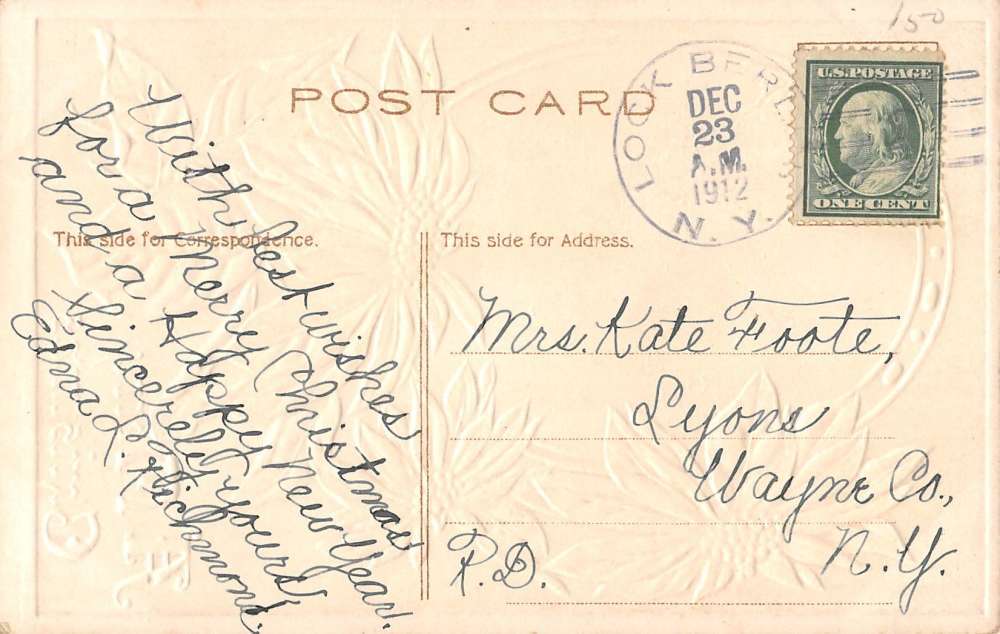 150
POST CARD
LOCK BERLIN
DEC
23
A.M.
1912
N.Y.
U.S.POSTAGE
ONE CENT
This side for Correspondence.
This side for Address.
With best wishes
for a Merry Christmas
and a Happy New Year.
Sincerely yours
Edna L. Richmond.
Mrs. Kate Foote,
Lyons
Wayne Co.,
R.D. N.Y.